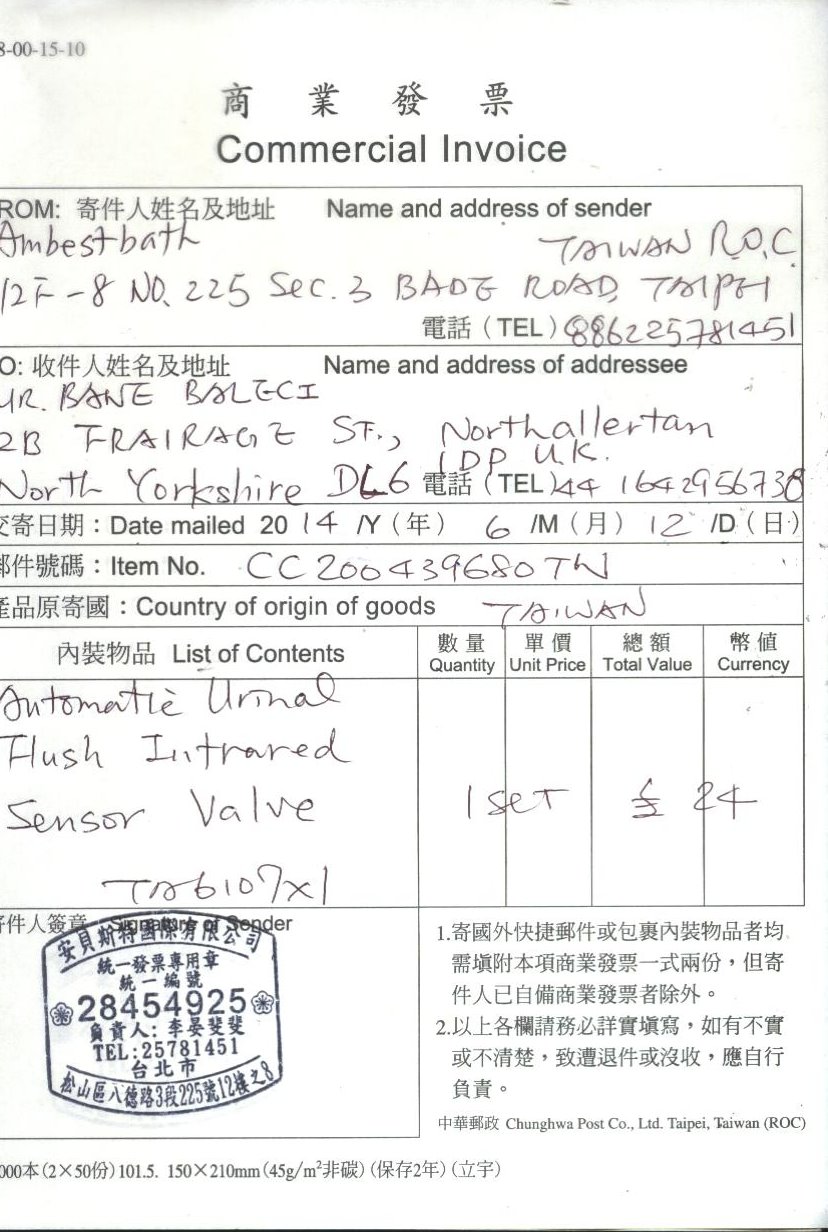 8-00-15-10
商業發票
Commercial Invoice
ROM: 寄件人姓名及地址 Name and address of sender
Ambestbath TAIWAN R.O.C.
12F-8 NO. 225 Sec. 3 BADE ROAD, TAIPEI
電話(TEL) 886225781451
O: 收件人姓名及地址 Name and address of addressee
MR. BANE BALECI
2B FRAIRAGE ST., Northallertan
1DP U.K.
North Yorkshire DL6 電話(TEL) 44 1642956738
交寄日期:Date mailed 2014 /Y(年) 6 /M(月) 12 /D(日)
郵件號碼:Item No. CC200439680TW
產品原寄國:Country of origin of goods TAIWAN
內裝物品 List of Contents 數量 Quantity 單價 Unit Price 總額 Total Value 幣值 Currency
Automatic Urinal
Flush Intrared
Sensor Valve 1 SET £ 24
TA6107x1
寄件人簽章 Signature of Sender
安貝斯特國際有限公司
統一發票專用章
統一編號
28454925
負責人:李晏斐斐
TEL:25781451
台北市
松山區八德路3段225號12樓之8
1.寄國外快捷郵件或包裹內裝物品者均
需填附本項商業發票一式兩份,但寄
件人已自備商業發票者除外。
2.以上各欄請務必詳實填寫,如有不實
或不清楚,致遭退件或沒收,應自行
負責。
中華郵政 Chunghwa Post Co., Ltd. Taipei, Taiwan (ROC)
000本(2×50份)101.5. 150×210mm(45g/m²非碳)(保存2年)(立宇)